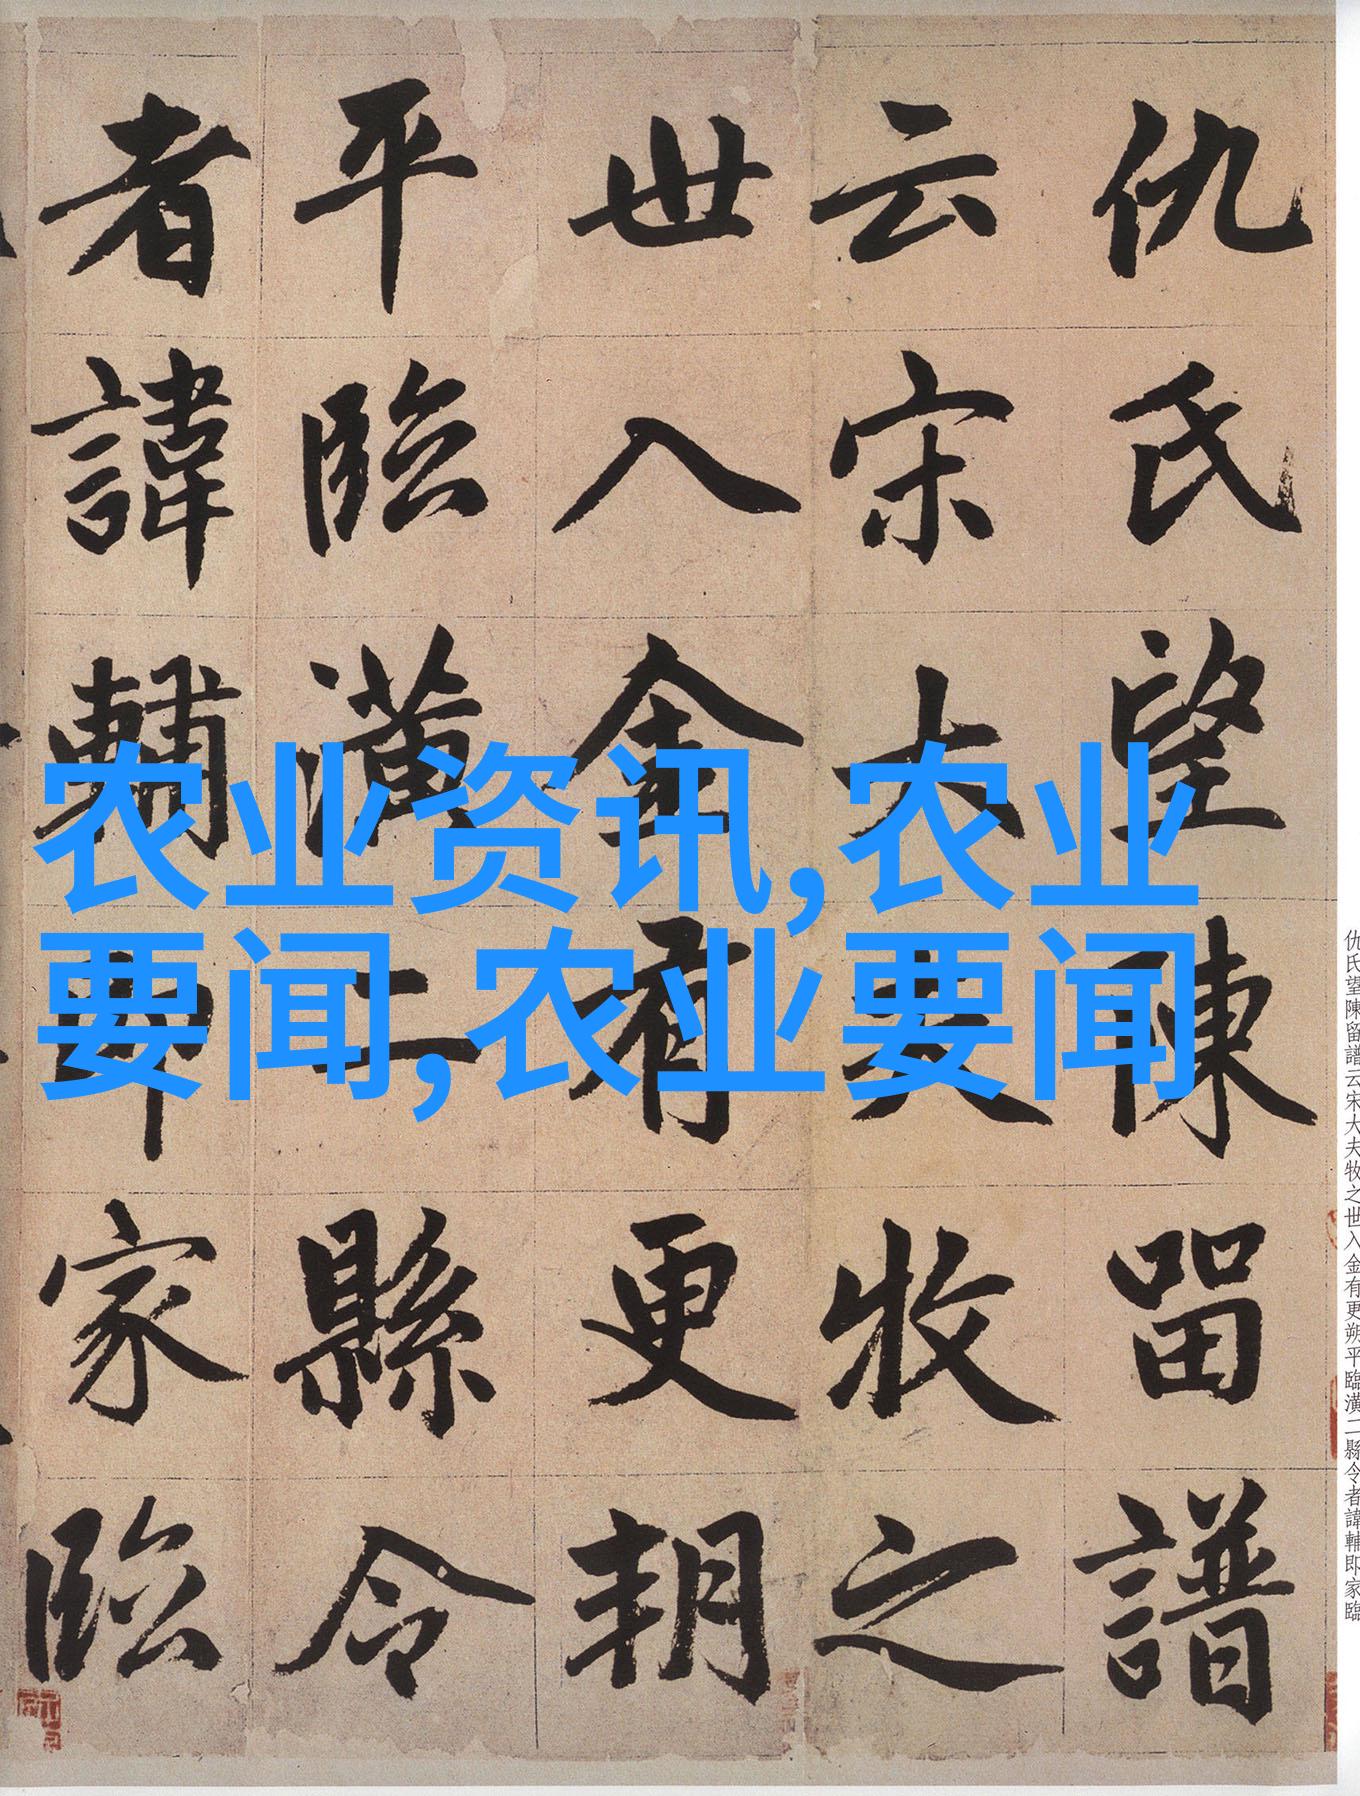 仇氏望陳留譜
云宋大夫牧之
世入金有更朔
平臨潢二縣令
者諱輔即家臨
农业资讯,农业
要闻,农业要闻
仇氏望陳留譜云宋大夫牧之世入金有更朔平臨潢二縣令者諱輔即家臨